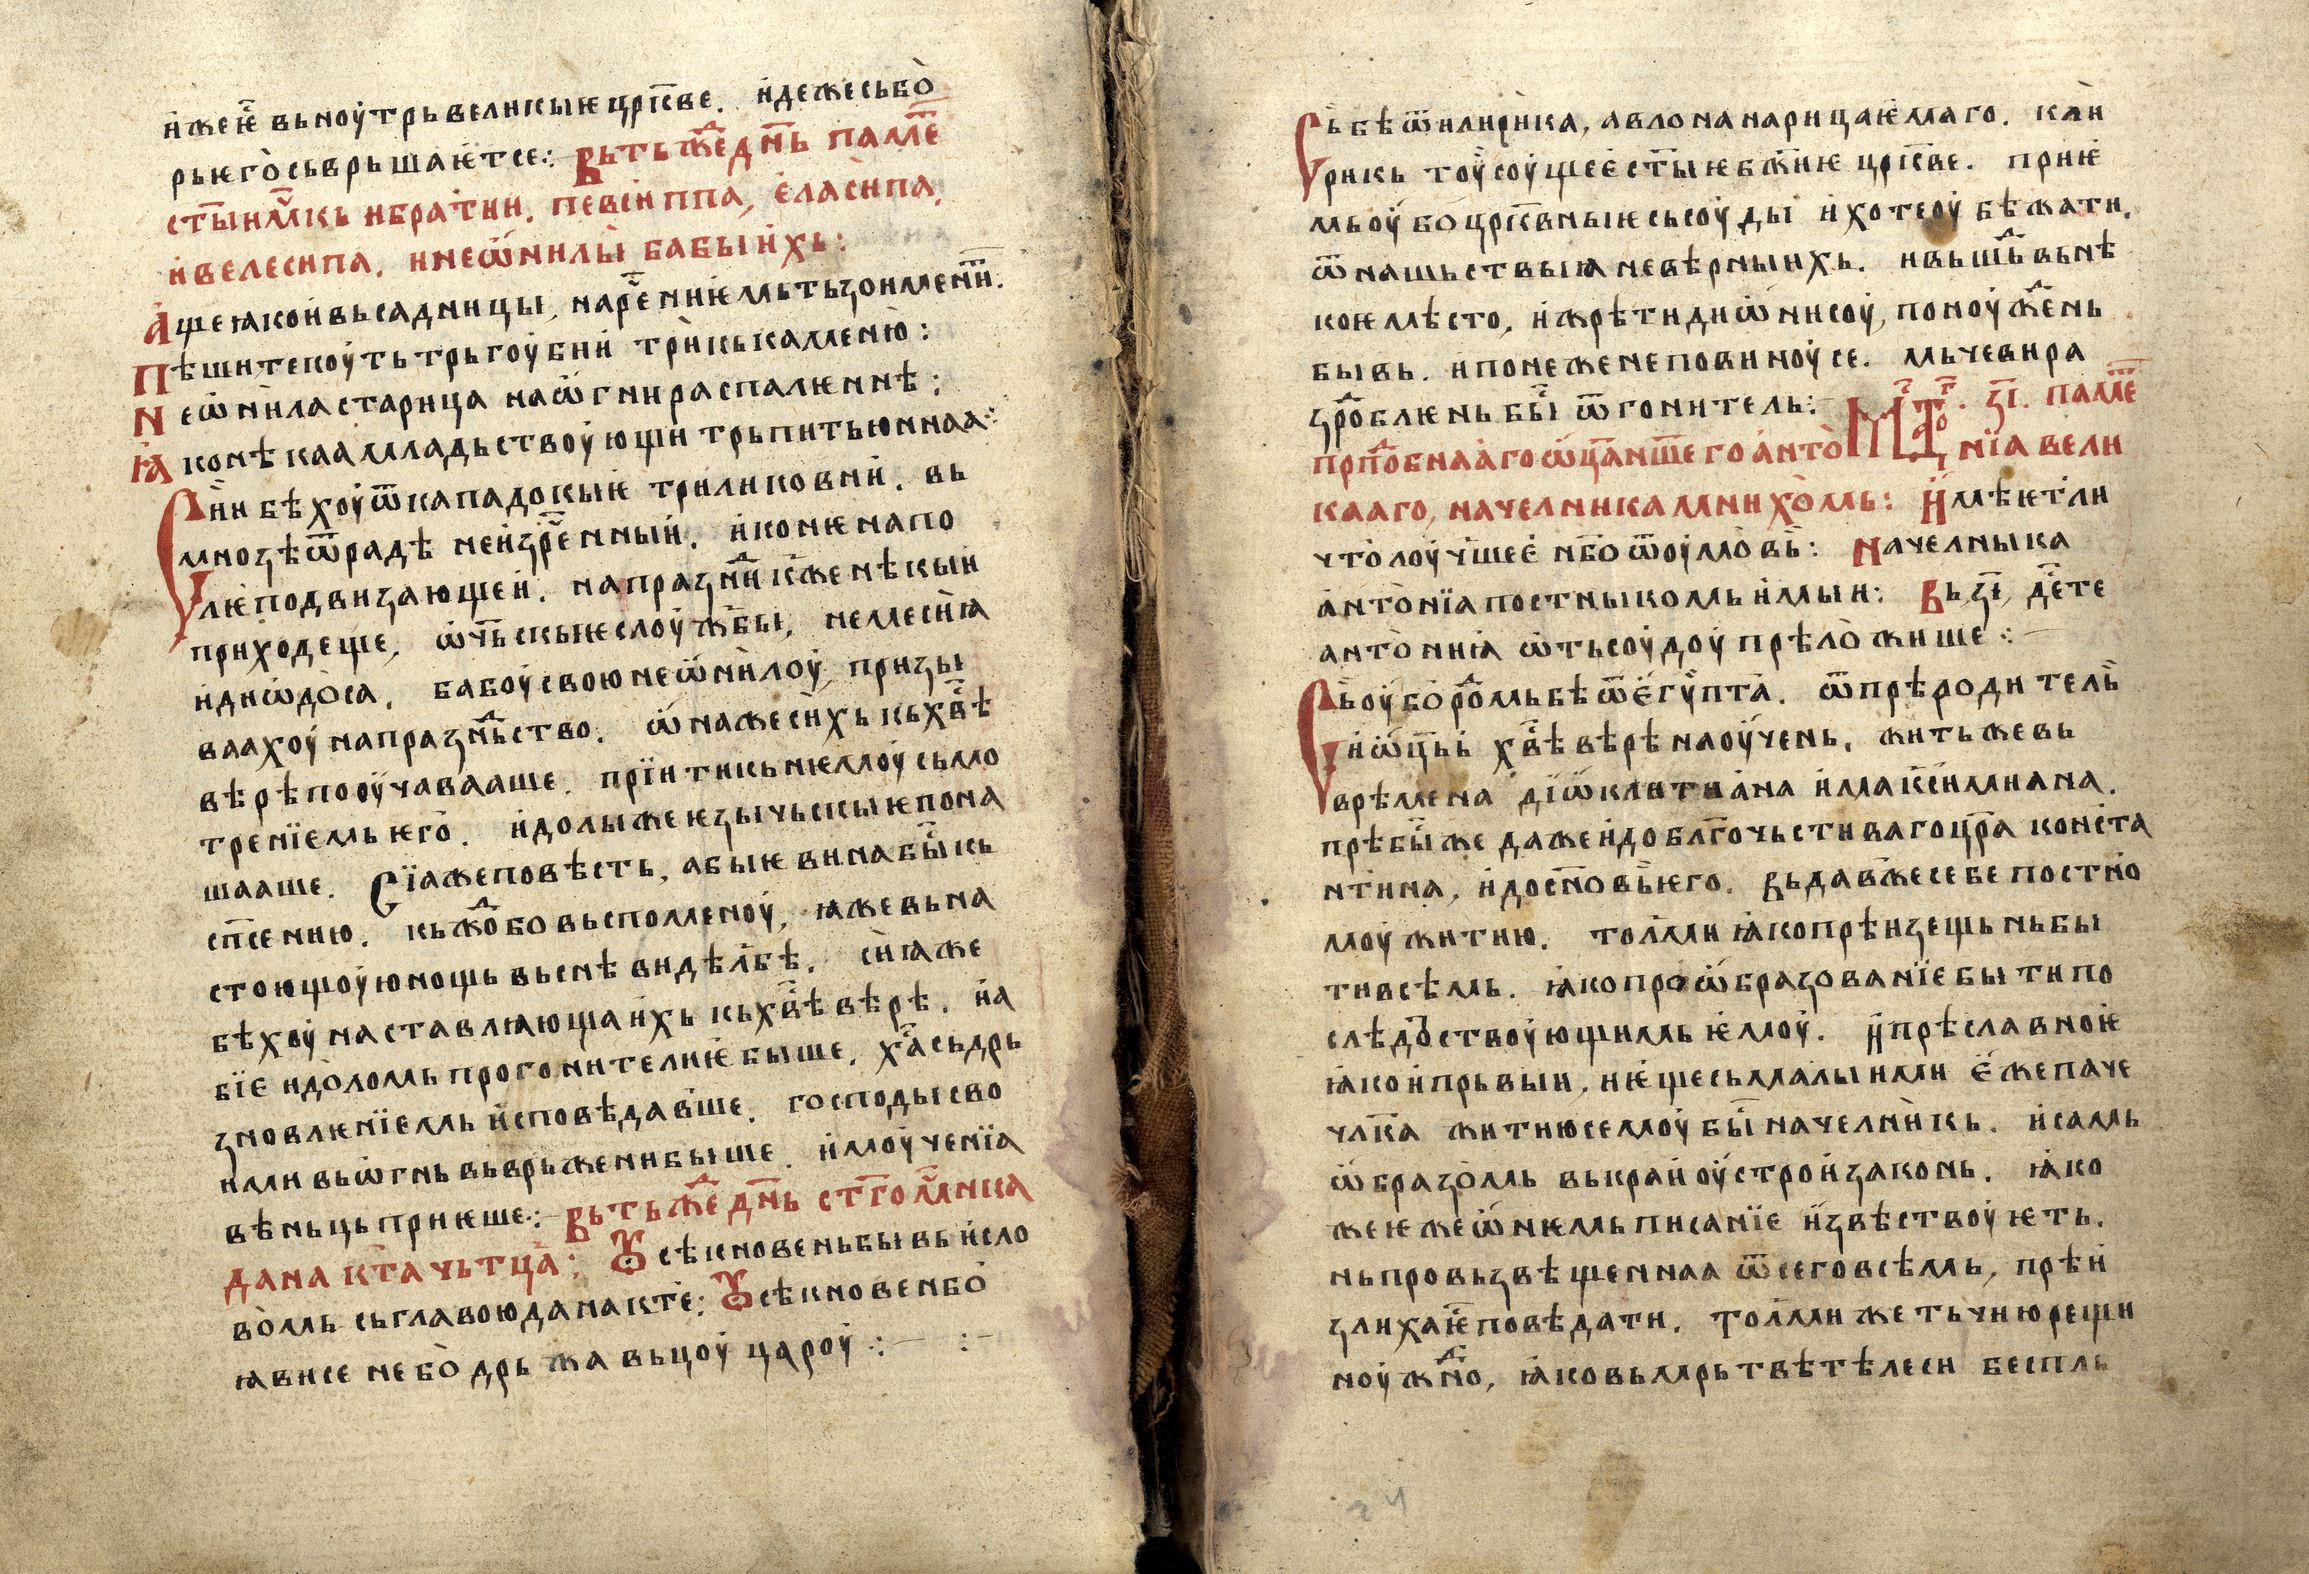 и҆же҆ѥ вьноу҆трьвеликыѥцрⷭ҇кве. и҆дежесьбо̀
рьѥго̀сьврьшаѥ҆тсе: Вьтьжⷣеднⷩ҇ь паⷨ҇ме
ст҃ыимⷱ҇кь ибратїи. певси́ппа, є҆ласипа,
и҆велесипа. инеѡ҆нилы̀ бабыи҆хь:
А҆щеꙗкои҆вьсадници, нарⷱ҇енниѥмьтьзоименїи.
Пѣшитекоу҆тьтрьгоу҆бии҆ три̇кькаменю̀:
Неѡ҆ниластарица наѡ҆гнираспалѥннѣ:
Ꙗ҆конѣкаамладьствоу҆ющи трьпитьюннаа:
Сїи бѣхоу҆ѿкападокыѥ҆ триликовии҆. вь
мнозѣѿрадѣ неи҆зрⷱ҇енныи҆. и҆конѥнапо
лѥ҆подвизающеи҆. напразⷣникжⷷенѣкыи
приходеще, ѡ҆чⷭ҇ьскыѥслоу҆жⷠбы, немесиꙗ
идиѡ҆до̀са. бабоу҆своюнеѡ҆ни̇лоу҆, призы
ваахоу҆напразⷣньство. ѡ҆нажесихь кьхвⷭ҇ѣ
вѣрѣпоѹ҆чаваꙗше. прїитикьнѥмоу҆сьмо
тренїемьѥго̀. и҆долыжеѥзычьскыѥпона
шааше. Сїꙗжеповѣсть, абыѥвинабыⷭ҇кь
спⷭ҇сению. кьжⷣобовьспоменоу҆, ꙗжевьна
стоющоу҆юнощьвьснѣвидѣлⷠбѣ. сиꙗже
бѣхоу҆наставлꙗющаи҆хь кьхвⷭ҇ѣвѣрѣ. и҆а
бїе идо̀ломьпрогонителиѥ҆быше, хⷭ҇асьдрь
зновлѥнїемьи҆сповѣдав̾ше. господьісво
имивьѡ҆гньвьврьженибыше. и҆моу҆ченїа
вѣньцьприѥше: Вьтьжⷣеднⷩ҇ь ст҃гоⷨ҇чника
данакⷮта чьтца̀: Ѹ҆сѣкновеньбывь и҆сло
во̀мь сьглавоюданактїе: Ѹ҆сѣкновенбо̀
ꙗвисе небо̀дрьжавьцоу҆ цароу҆:
Сьбѣѿилирика, авлонанарицаѥ҆маго. кли
рикь тоу҆соу҆щеє҆ст҃ыѥбж҃иѥ црⷭ҇кве. приѥ҆
мьоу҆боцрⷭ҇квныѥсьсоу҆ды и҆хотеоу҆бѣжати.
ѿнашьствыꙗневѣрныихь. ивьшⷣьвьнѣ
коѥмѣсто, и҆жрѣтидиѡ҆нисоу҆, поноу҆жⷣень
бывь. ипонеженеповиноу҆се. мьчеви ра
здⷬ҇роблѥньбыⷭ҇ ѿгонитель: Мцⷭ҇а тⷢ҇о. з҃і. паⷨ҇ме
прпⷣобнаагоѡ҆ц҃анⷲ҇шегоа҆нто̀нїа вели
кааго, начелникамнихо̀мь: И҆мѣѥтли
что̀лоу҆ч̾шеє҆ нб҃оѿоу҆мовь̀: Начелныка
а҆нто̀нїапостныкомьи҆мыи: Вьз҃і, дⷭ҇ете
анто̀ниꙗ ѡ҆тьсоу҆доу҆ прѣло̀жише:
Сьоу҆борⷣомьбѣѿє҆гѵ́пта. ѿпрѣродитель
и҆ѡ҆ць̀и хвⷭ҇ѣвѣрѣнаоу҆чень. житьжевь
врѣмена дїѡ҆клитиа҆на и҆маѯи́миꙗна.
прѣбыⷭ҇же дажеи҆доблⷢ҇очьстивагоцⷬ҇ра конста
нтина, и҆досн҃овьѥго. Вьдав̾жесебе постно
моу҆житию. толми ꙗ҆копрѣизещьньбы
тивсѣмь. ꙗ҆копроѡ҆бразованїебытипо
слѣдⷪствоу҆ющимьѥ҆моу҆. И҆прѣславноѥ҆
ꙗ҆кои҆прьвыи, иѥ҆щесьмалыими є҆жепаче
чл҃ка житиюсемоу҆быⷭ҇начелни̇кь. и҆самь
ѡ҆бразо̀мь вькраиоу҆строи҆законь. ꙗ҆ко
жеѥжеѡ҆нѥмьписанїе и҆звѣствоу҆ѥть.
ньпровьзвѣщеннаа ѿсеговсѣмь, прѣи
злихаѥⷭ҇повѣдати. толмижетьчиюрещи
ноу҆жⷣно, ꙗ҆ковьмрьтвѣтѣлеси беспль
24